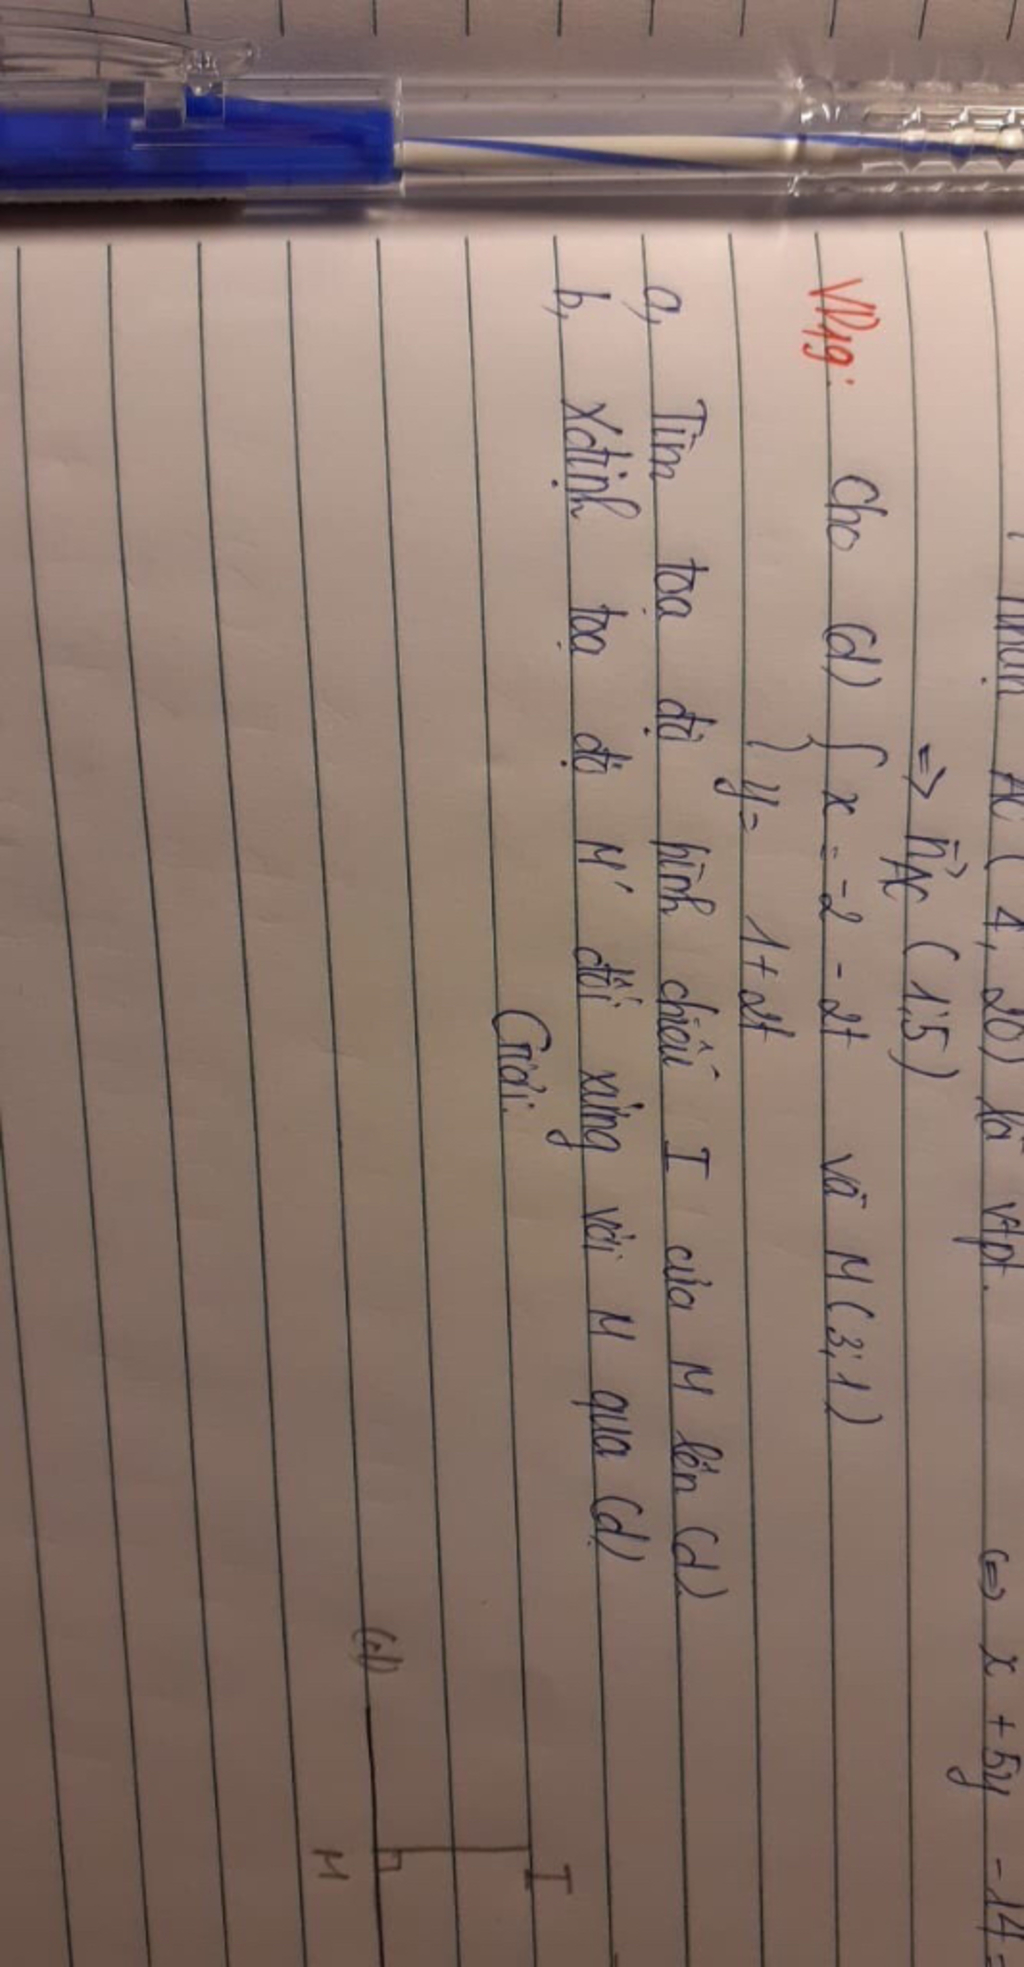 AC ( 4, 20) là vtpt.
⇔ x + 5y - 14 =
=> n⃗AC (1;5)
VD19: Cho (d) { x = -2 - 2t và M(3;1)
y = 1 + 2t
a, Tìm tọa độ hình chiếu I của M lên (d)
b, Xđịnh tọa độ M' đối xứng với M qua (d)
Giải:
I
(d)
M